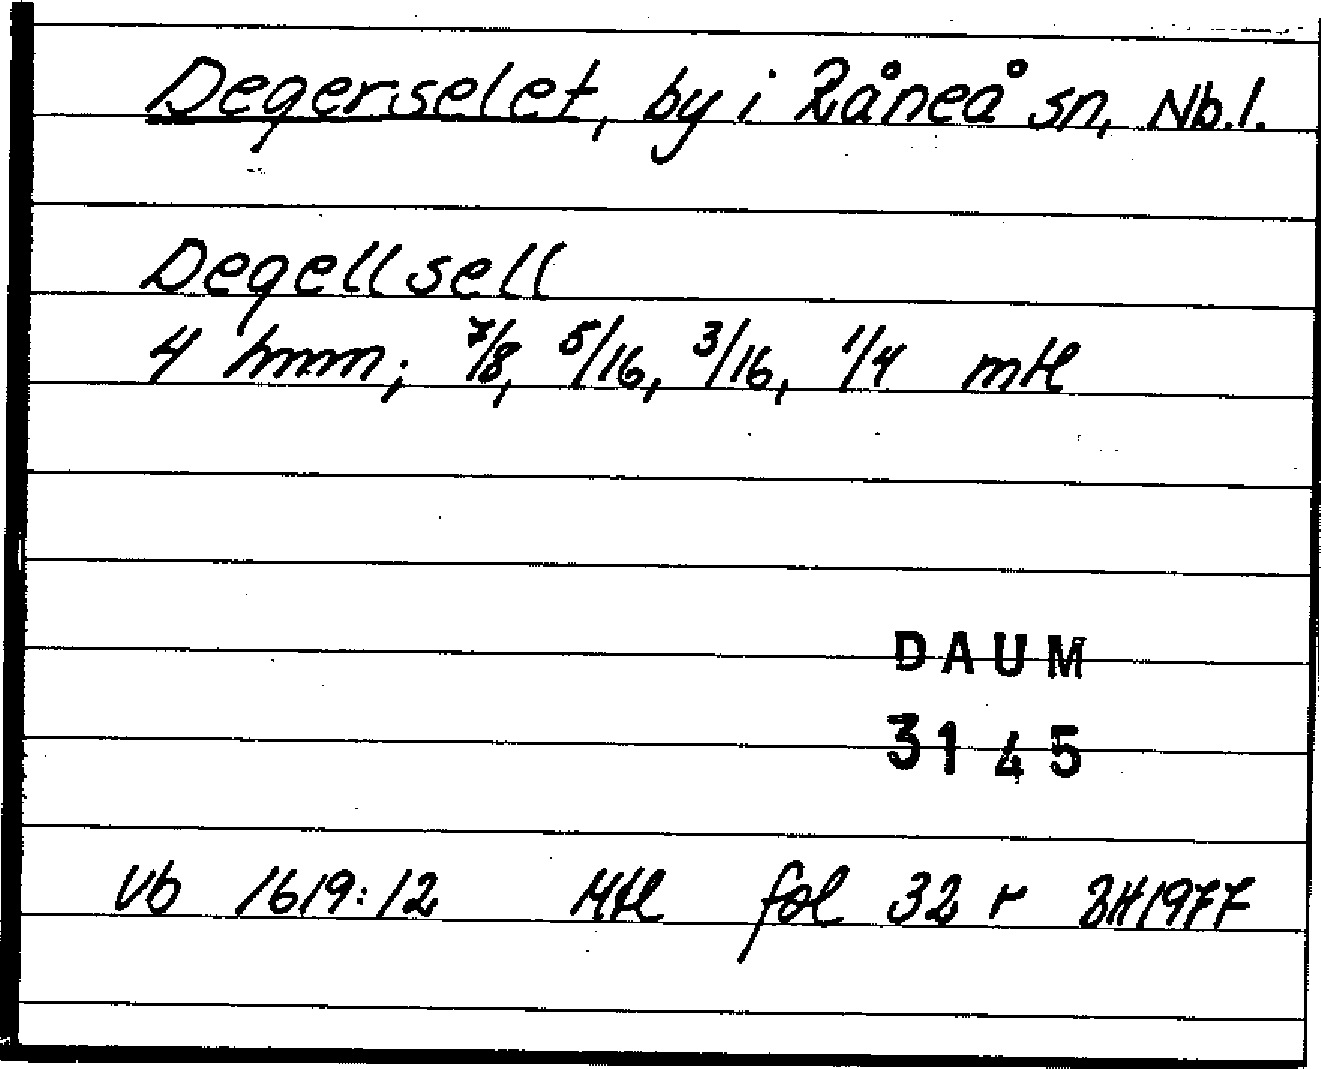 Degerselet, by i Råneå sn, Nb.l.
Degellsell
4 hmm; 7/8, 5/16, 3/16, 1/4 mtl
DAUM
3145
Vb 1619:12 Mtl fol 32 r BH 1977